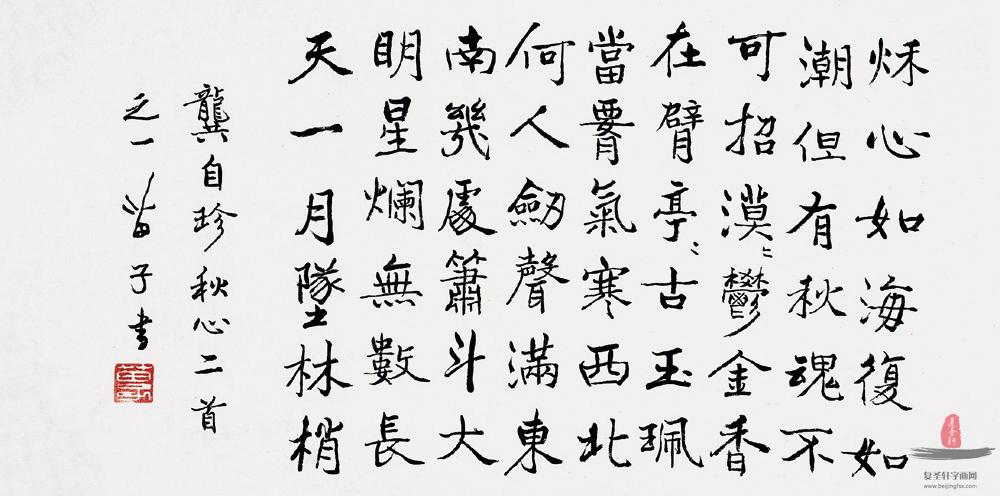 秌心如海復如
潮但有秋魂不
可招漠〻鬱金香
在臂亭〻古玉珮
當腰氣寒西北
何人劒聲滿東
南幾處簫斗大
明星爛無數長
天一月墜林梢
龔自珍秋心二首
之一 苗子書
复圣轩字画网
www.beijingfsx.com